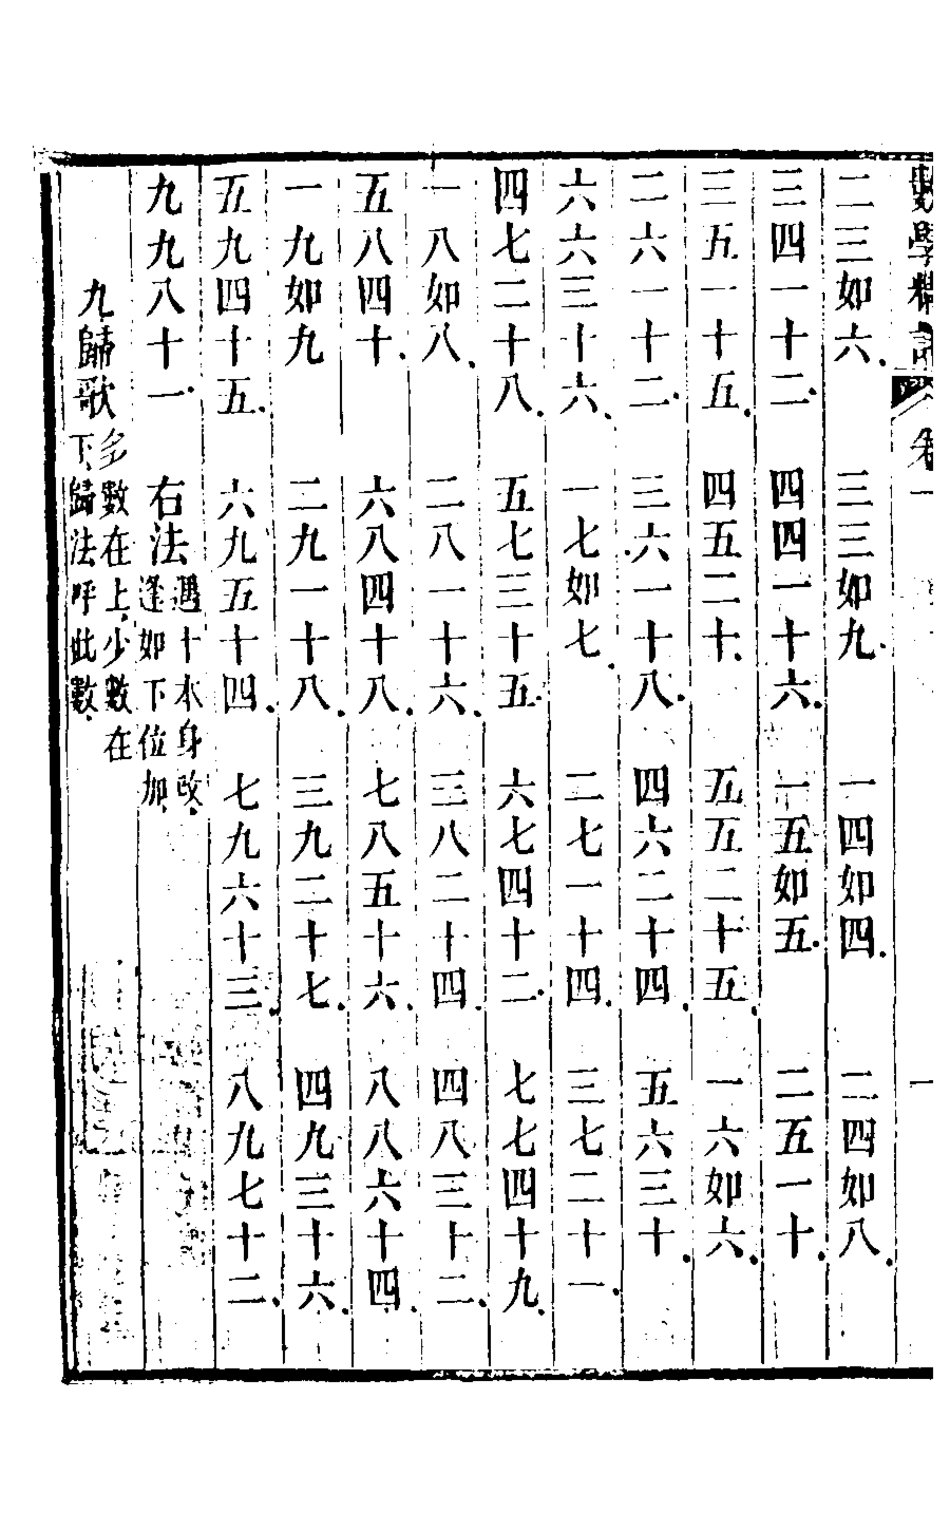 數學精詳 卷一 一
二三如六 三三如九 一四如四 二四如八
三四一十二 四四一十六 一五如五 二五一十
三五一十五 四五二十 五五二十五 一六如六
二六一十二 三六一十八 四六二十四 五六三十
六六三十六 一七如七 二七一十四 三七二十一
四七二十八 五七三十五 六七四十二 七七四十九
一八如八 二八一十六 三八二十四 四八三十二
五八四十 六八四十八 七八五十六 八八六十四
一九如九 二九一十八 三九二十七 四九三十六
五九四十五 六九五十四 七九六十三 八九七十二
九九八十一 右法 遇十本身改 逢如下位加
九歸歌 多數在上少數在 下歸法呼此數